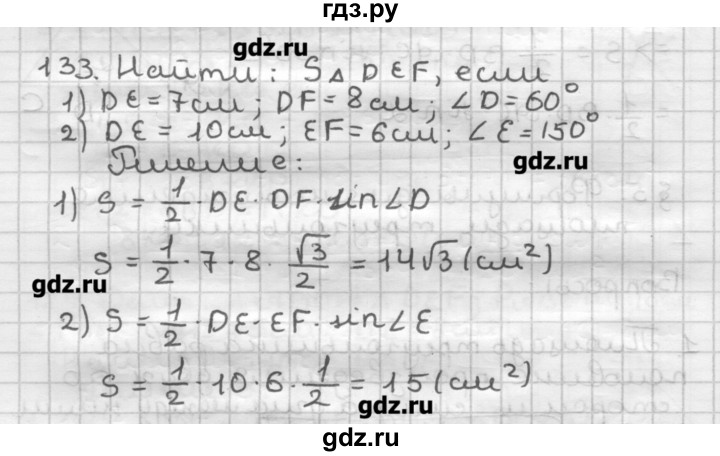 гдз.ру
gdz.ru
133. Найти: S△ DEF, если
1) DE = 7см; DF = 8см; ∠D = 60°
2) DE = 10см; EF = 6см; ∠E = 150°
gdz.ru
Решение:
1) S = 1/2 · DE · DF · sin∠D
S = 1/2 · 7 · 8 · √3/2 = 14√3 (см²)
gdz.ru
2) S = 1/2 · DE · EF · sin∠E
S = 1/2 · 10 · 6 · 1/2 = 15 (см²)
gdz.ru
gdz.ru